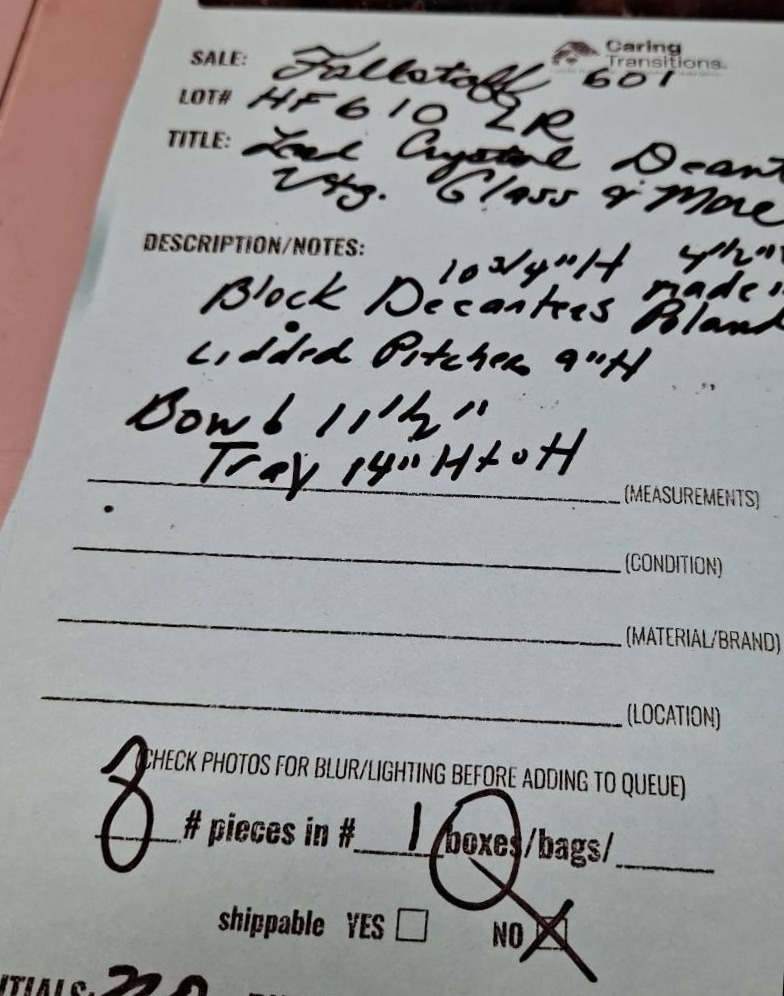 Caring
Transitions
SALE: Fallstaff 601
LOT# HF610 LR
TITLE: Lead Crystal Decant
Vtg. Glass & More
DESCRIPTION/NOTES:
10 3/4"H 4 1/2"
Block Decanters made
Poland
Lidded Pitcher 9"H
Bowl 11 1/2"
Tray 14" H to H
(MEASUREMENTS)
(CONDITION)
(MATERIAL/BRAND)
(LOCATION)
(CHECK PHOTOS FOR BLUR/LIGHTING BEFORE ADDING TO QUEUE)
8 # pieces in # 1 boxes/bags/
shippable YES NO